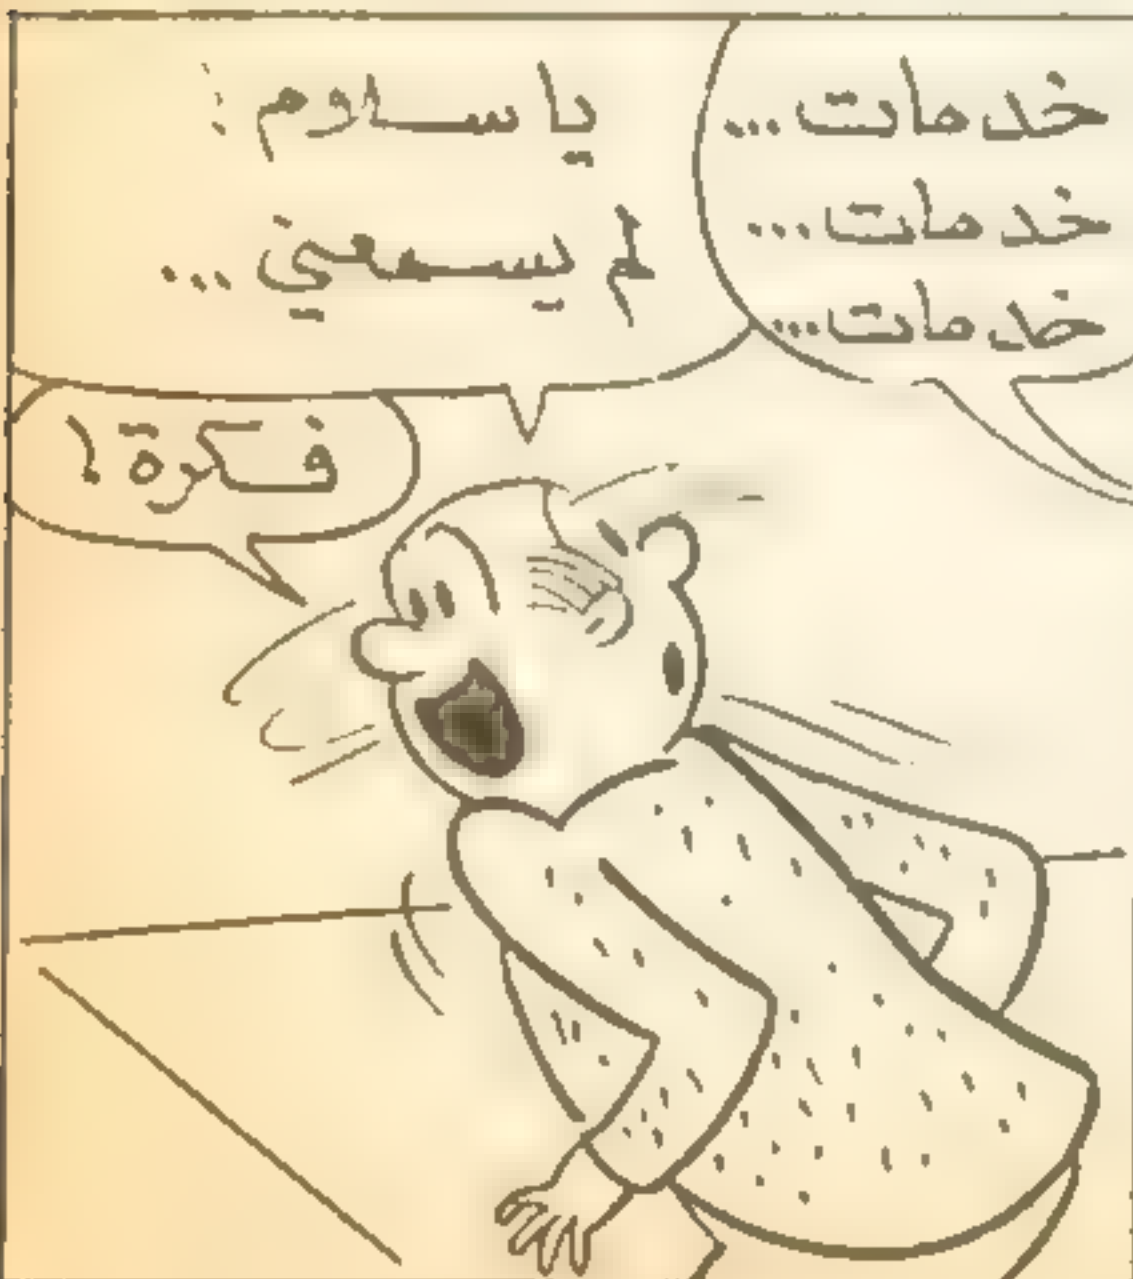 خدمات...
خدمات...
خدمات...
يا سلام!
لم يسمعني...
فكرة!